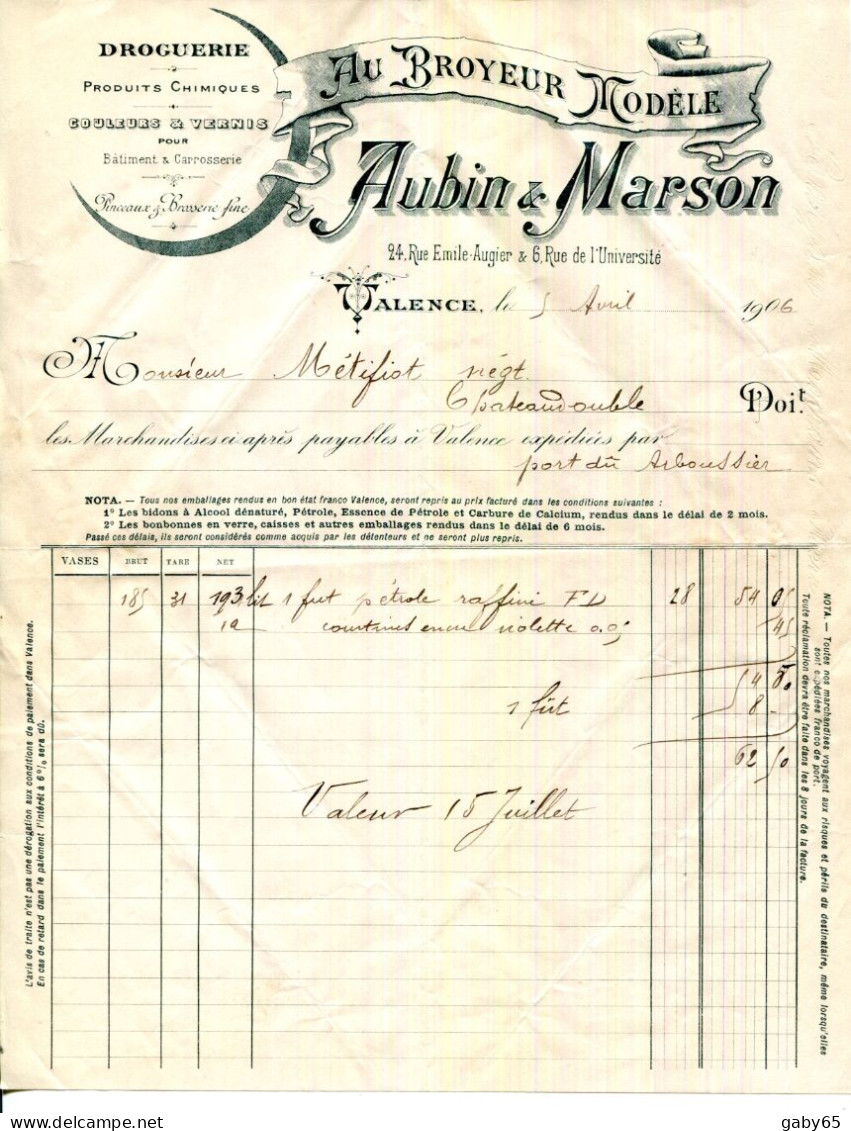 DROGUERIE
PRODUITS CHIMIQUES
COULEURS & VERNIS
POUR
Bâtiment & Carrosserie
Pinceaux & Brosserie fine
AU BROYEUR MODÈLE
Aubin & Marson
24, Rue Emile-Augier & 6, Rue de l'Université
VALENCE, le 5 Avril 1906
Monsieur Métifiot négt.
Chateaudouble Doit
les Marchandises ci après payables à Valence expédiées par
port dû Arboussier
NOTA. — Tous nos emballages rendus en bon état franco Valence, seront repris au prix facturé dans les conditions suivantes :
1° Les bidons à Alcool dénaturé, Pétrole, Essence de Pétrole et Carbure de Calcium, rendus dans le délai de 2 mois.
2° Les bonbonnes en verre, caisses et autres emballages rendus dans le délai de 6 mois.
Passé ces délais, ils seront considérés comme acquis par les détenteurs et ne seront plus repris.
VASES BRUT TARE NET
185 31 193 lit 1 fut pétrole raffiné FD 28 54 05
violette 0.05 45
54 50
1 fût 8 -
62 50
Valeur 15 Juillet
L'avis de traite n'est pas une dérogation aux conditions de paiement dans Valence.
En cas de retard dans le paiement l'intérêt à 6 % sera dû.
NOTA. — Toutes nos marchandises voyagent aux risques et périls du destinataire, même lorsqu'elles
sont expédiées franco de port.
Toute réclamation devra être faite dans les 8 jours de la facture.
gaby65